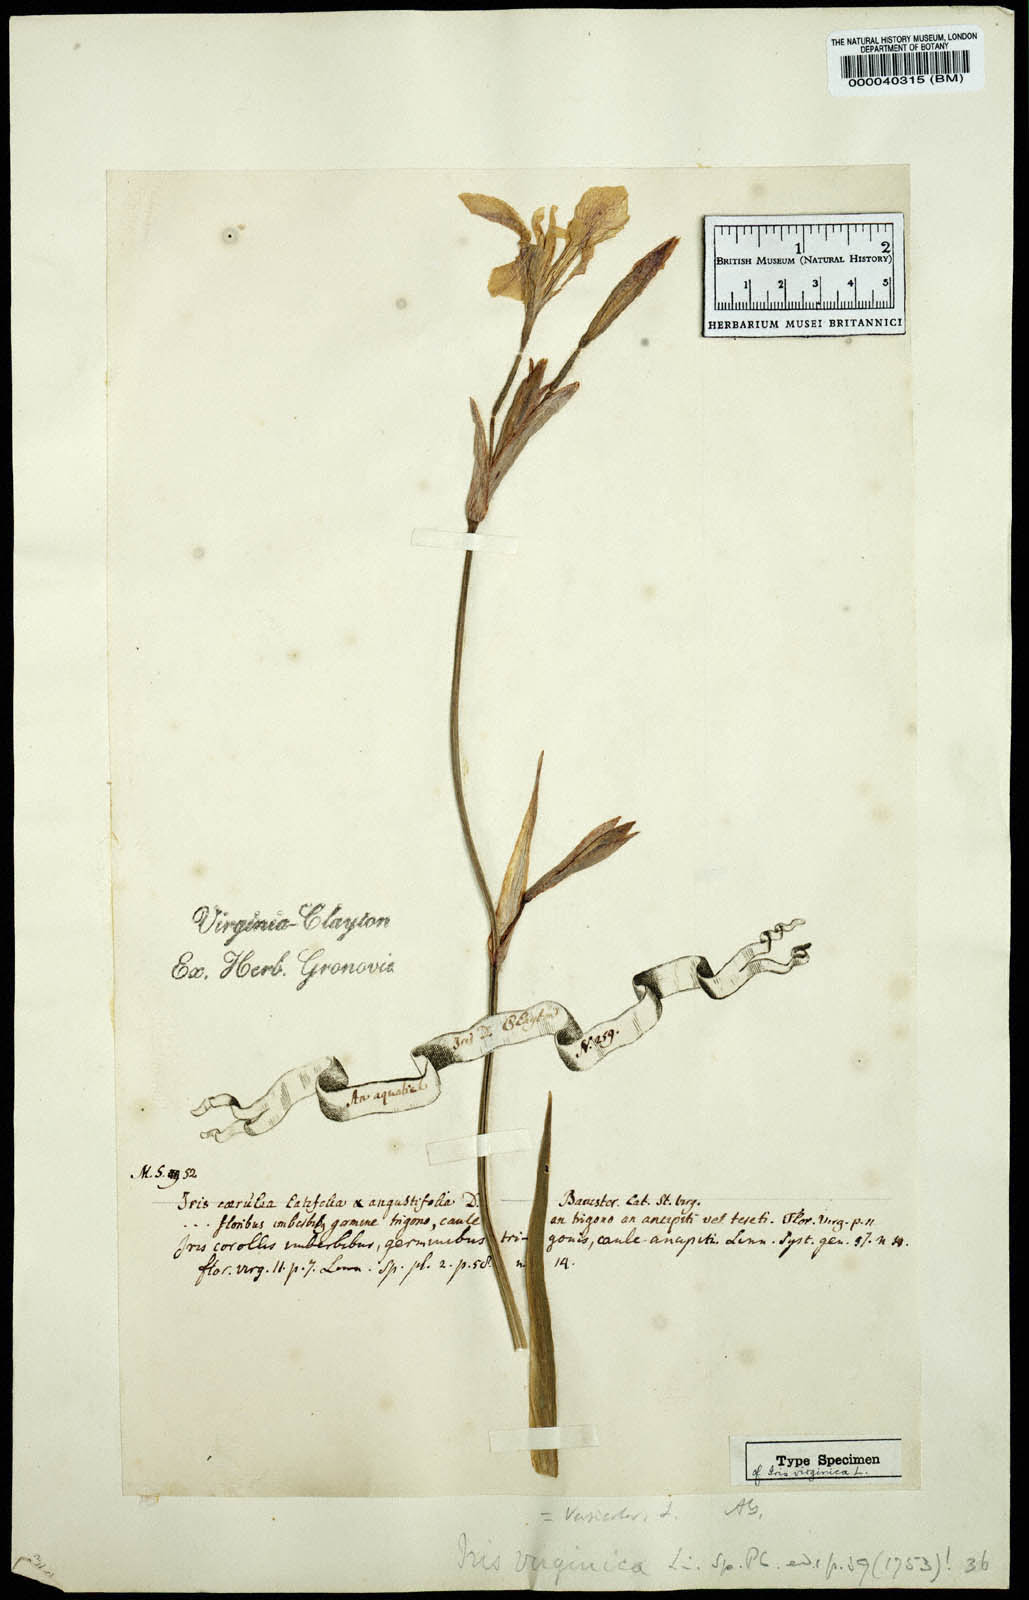 THE NATURAL HISTORY MUSEUM, LONDON
DEPARTMENT OF BOTANY
000040315 (BM)
1 2
BRITISH MUSEUM (NATURAL HISTORY)
1 2 3 4 5
HERBARIUM MUSEI BRITANNICI
Virginia-Clayton
Ex. Herb. Gronovii
An aquatica
Iris D. Clayton
N. 259.
M. S. 52
Iris cærulea latifolia & angustifolia D. Banister. Cat. St. Virg.
... floribus imberbib, germine trigono, caule an trigono an ancipiti vel tereti. Flor. Virg. p. 11
Iris corollis imberbibus, germinibus trigonis, caule ancipiti. Linn. Syst. gen. 57. n
flor. virg. 11. p. 7. Linn. Sp. pl. 2. p. 58. n 14.
Type Specimen
of Iris virginica L.
= Versicolor, L. Ab.
Iris virginica L. Sp. Pl. ed. 1 p. 39 (1753)! 36